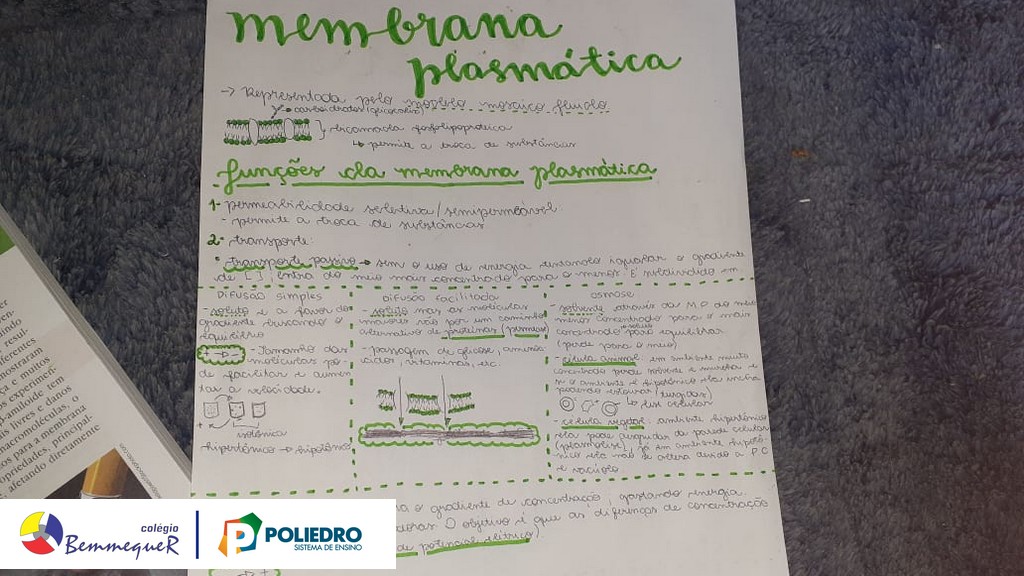 membrana
plasmática
→ Representada pelo modelo mosaico fluido
carboidratos (glicocálix)
bicamada fosfolipoproteica
↳ permite a troca de substâncias
funções da membrana plasmática
1- permeabilidade seletiva/semipermeável:
- permite a troca de substâncias
2- transporte:
• transporte passivo → sem o uso de energia visando igualar o gradiente
de [ ] entra do meio mais concentrado para o menor. É subdividido em
Difusão simples
- soluto e a favor do
gradiente buscando o
equilíbrio
- Tamanho das
moléculas po-
de facilitar e aumen-
tar a velocidade.
isotônica
hipertônico → hipotônico
Difusão facilitada
- soluto mas as moléculas
maiores vão por um caminho
alternativo de proteínas
- passagem de glicose, aminoá-
cidos, vitaminas, etc.
osmose
- solvente através da M.P do meio
menos concentrado para o mais
concentrado para equilibrar
soluto
- célula animal: em ambiente muito
concentrado perde solvente e murcha e
se o ambiente é hipotônico ela incha
podendo estourar (turgidas)
↳ lise celular
- célula vegetal: ambiente hipertônico
ela pode desgrudar da parede celular
(plasmólise), já em ambiente hipotô-
nico ela não se altera devido a P.C
e vacúolo.
o gradiente de concentração, gastando energia.
O objetivo é que as diferenças de concentração
de potencial elétrico).
colégio
BemmequeR
POLIEDRO
SISTEMA DE ENSINO